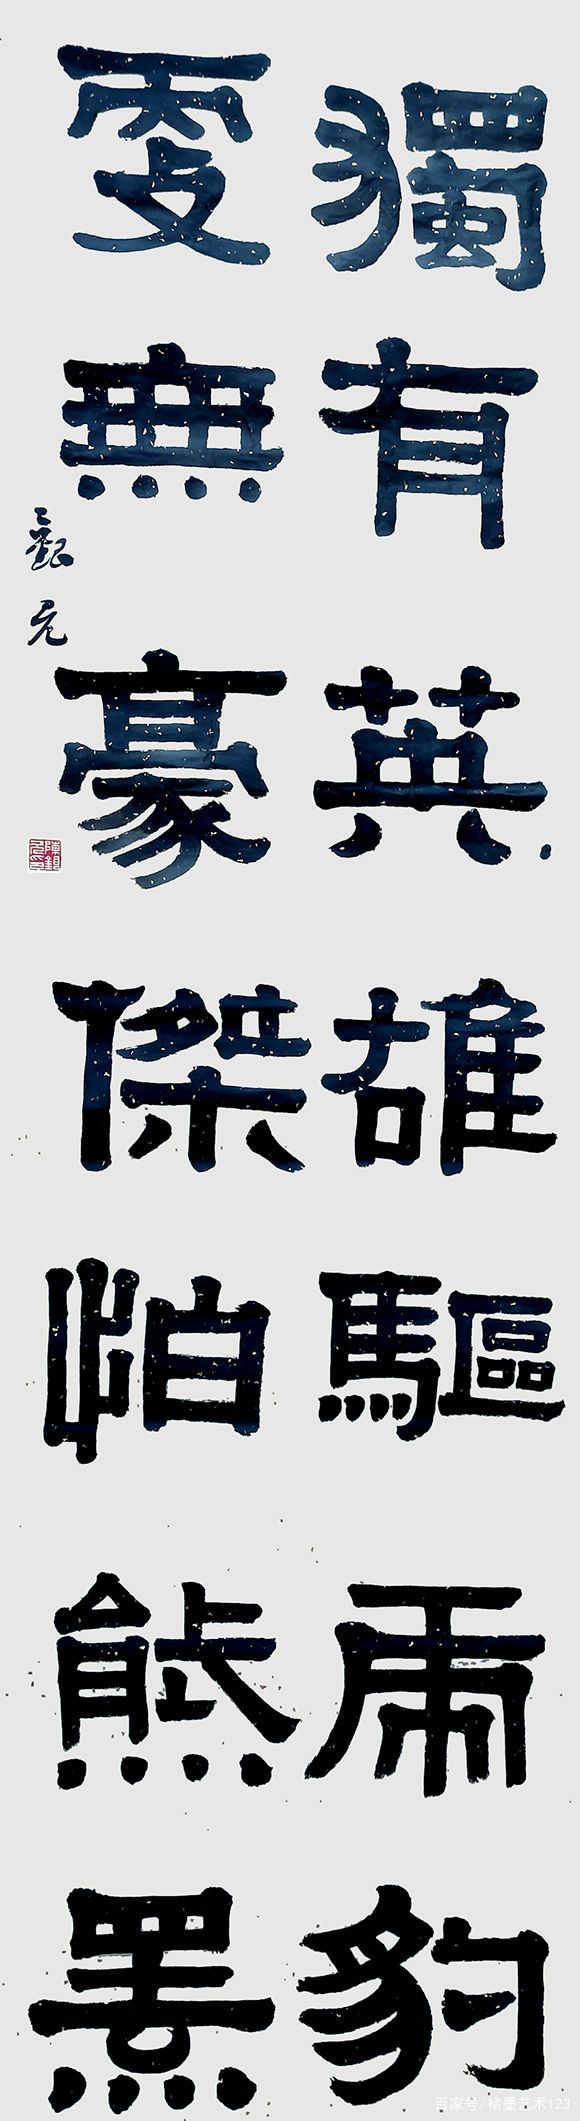 獨有英雄驅虎豹
更無豪傑怕熊羆
百家号/楮墨艺术123